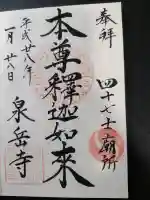 奉拝
四十七士廟所
本尊釋迦如來
平成廿八年
一月廿八日
泉岳寺